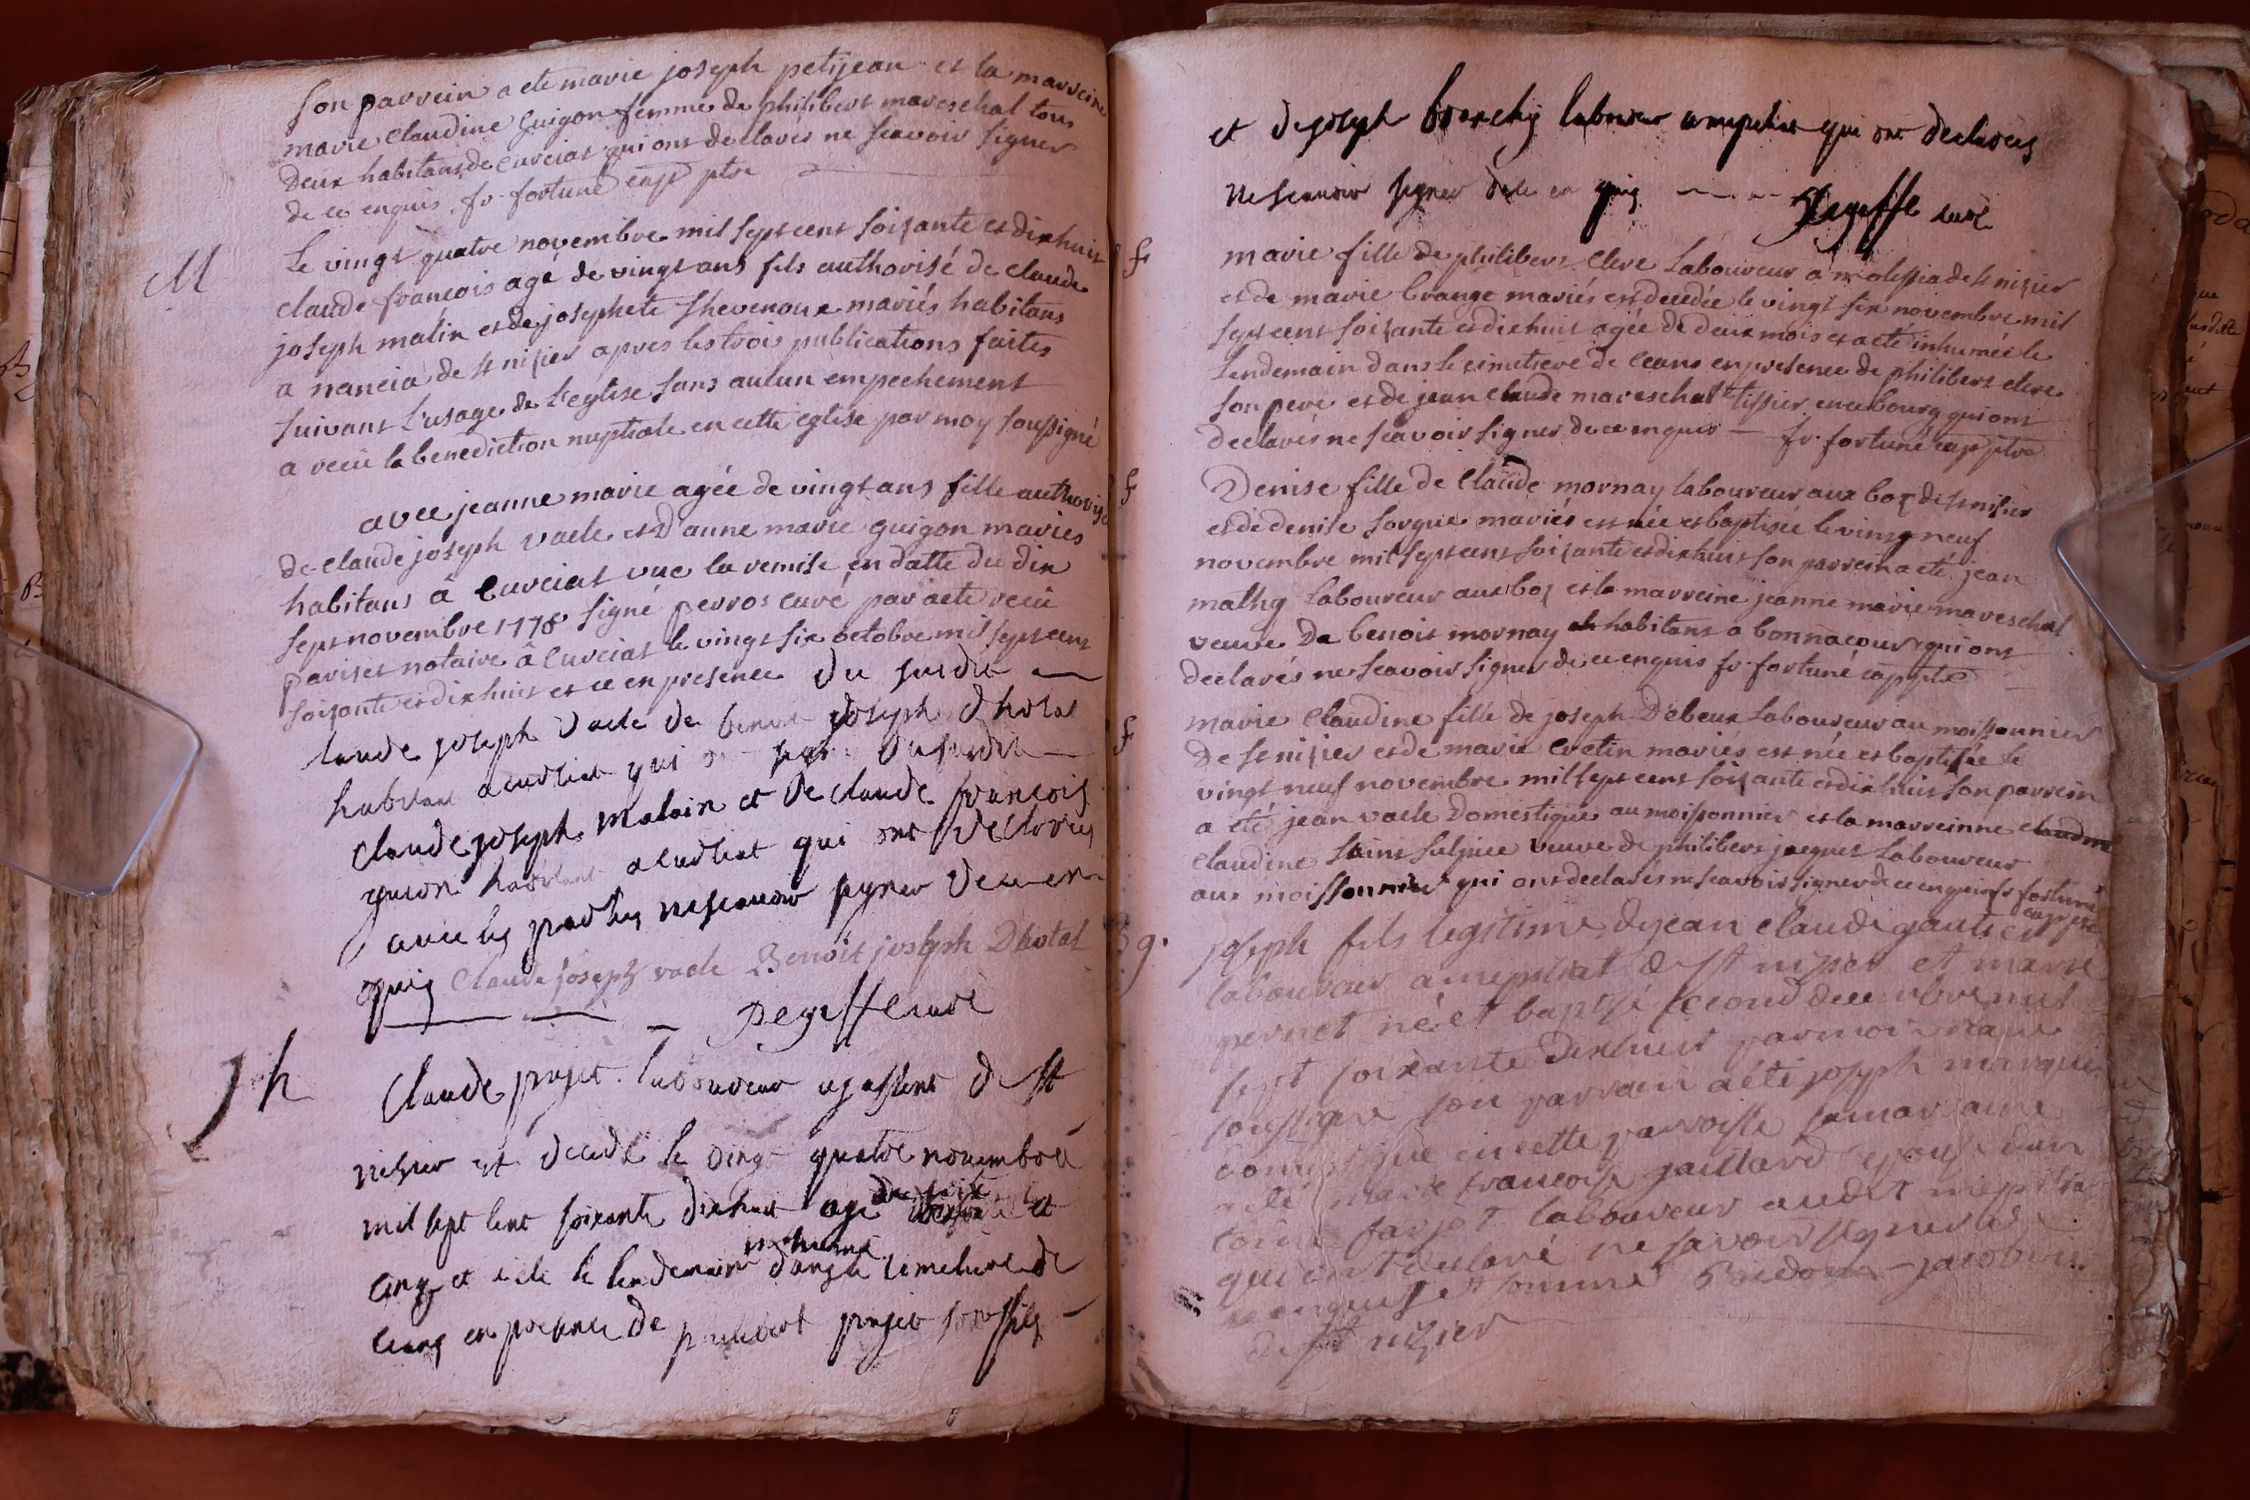 son parrein a ete marie joseph petijean et la marreine
marie claudine guigon femme de philibert mareschal tous
deux habitans de curciat qui ont declares ne scavoir signer
de ce enquis fr. fortuné cap ptre
M
le vingt quatre novembre mil sept cent soizante et dixhuit
claude françois agé de vingt ans fils authorisé de claude
joseph matin et de josephete thevenoux mariés habitans
a nancia de st nizier apres les trois publications faites
suivant l'usage de l'eglise sans aucun empechement
a recu la benediction nuptiale en cette eglise par moy soussigné
avec jeanne marie agée de vingt ans fille authorisée
de claude joseph vacle et d'anne marie guigon mariés
habitans â Curciat vue la remise en datte du dix
sept novembre 1778 signé perros curé par acte recu
pariset notaire â Curciat le vingt six octobre mil sept cent
soizante et dixhuit et ce en presence du susdit
claude joseph vacle de benoit joseph dhotal
habitant a curtiat qui signé du susdit
claude joseph matain et de claude francois
guion habitant a curtiat qui ont declarés
avec les parties ne scavoir signer de ce en
quis Claude joseph vacle Benoit joseph Dhotal
curé
Jh
Claude projet laboureur de st
nizier est decedé le vingt quatre novembre
mil sept cent soixante dixhuit agé de soixante et
cinq et a ete le lendemain inhumé dans le cimetiere de
ceans en presence de philibert projet son fils
et de joseph laboureur qui ont declarés
ne scavoir signer de ce en quis curé
f
marie fille de philibert clere laboureur a malessia de st nizier
et de marie brange mariés est decedée le vingt six novembre mil
sept cent soizante et dixhuit agée de deux mois et a eté inhumée le
lendemain dans le cimetiere de ceans en presence de philibert clere
son pere et de jean claude mareschal tissier en ce bourg qui ont
declarés ne scavoir signer de ce enquis fr. fortuné cap ptre
f
Denise fille de claude mornay laboureur aux boz de st nizier
et de denise sorgue mariés est née et baptisée le vingt neuf
novembre mil sept cent soizante et dixhuit son parrein a eté jean
mathy laboureur aux boz et la marreine jeanne marie mareschal
veuve de benoit mornay habitans a bonnacour qui ont
declarés ne scavoir signer de ce enquis fr. fortuné cap ptre
f
marie claudine fille de joseph Debeux laboureur au moissonnier
de st nizier et de marie cretin mariés est née et baptisée le
vingt neuf novembre mil sept cent soizante et dixhuit son parrein
a eté jean vacle domestique au moissonnier et la marreinne claudine
claudine saint sulpice veuve de philibert jacquet laboureur
aux moissonnier qui ont declarés ne scavoir signer de ce enquis fr fortuné
cap ptre
g.
joseph fils legitime de jean claude
laboureur de st nizier et marie
pernet né et baptisé second decembre mil
sept soixante dixhuit par moi
soussigné son parrain a eté joseph
domestique en cette parroisse sa marraine
a eté marie francoise gaillard
laboureur audit
qui ont declaré ne savoir signer de
ce enquis et sommés
de st nizier